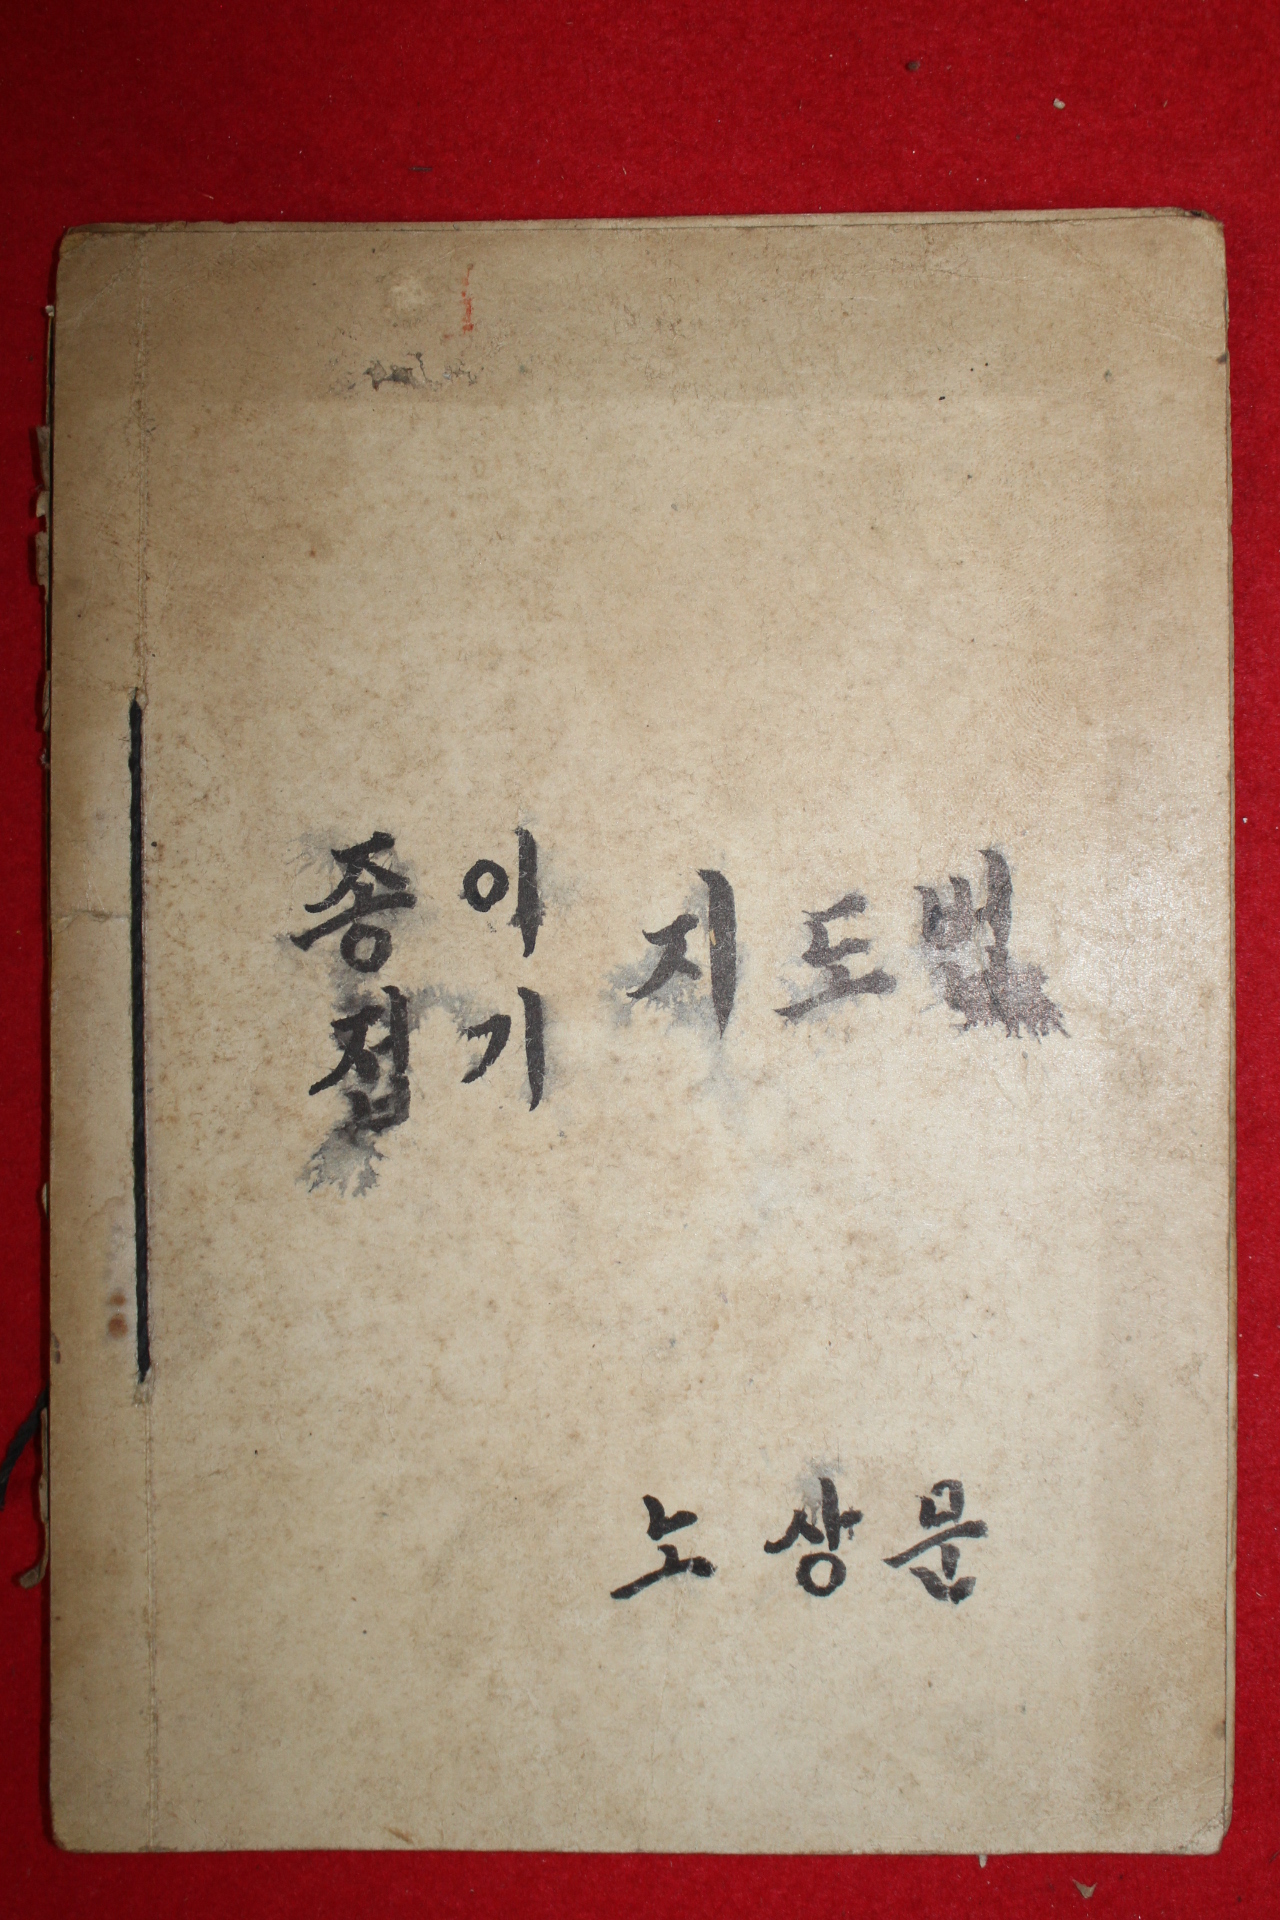 종이
접기 지도법
노상문